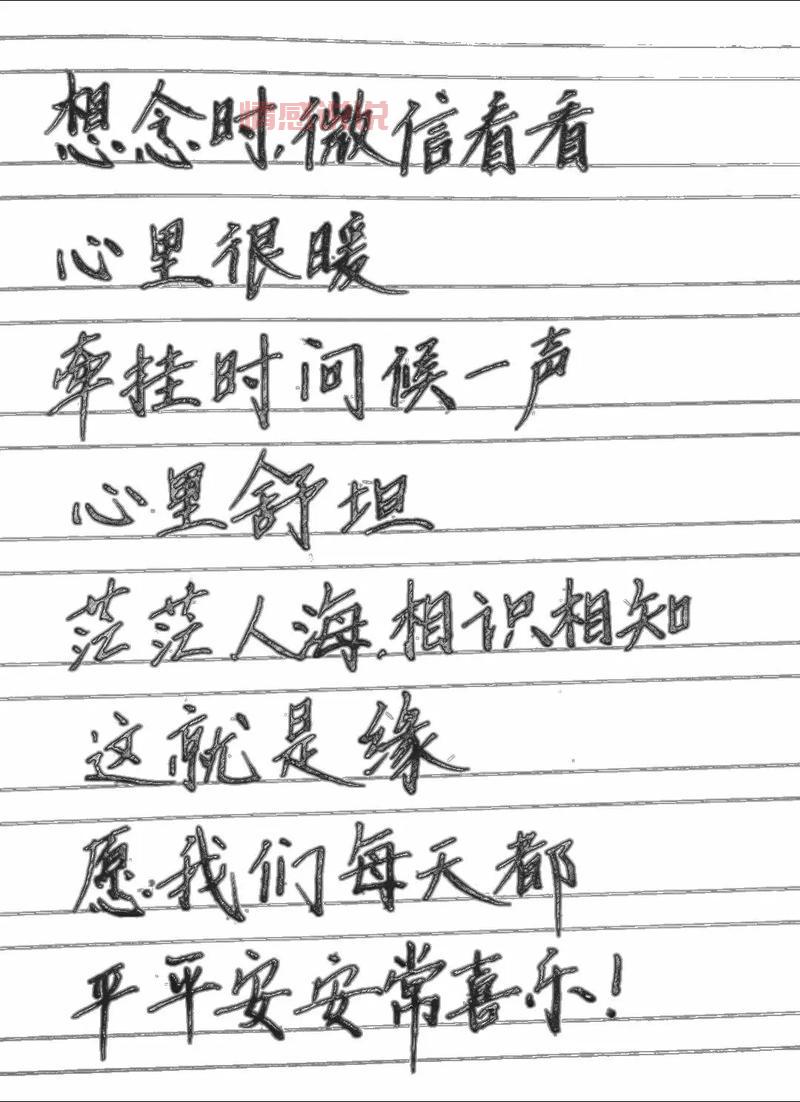 情感说说
想念时,微信看看
心里很暖
牵挂时问候一声
心里舒坦
茫茫人海,相识相知
这就是缘
愿我们每天都
平平安安常喜乐!